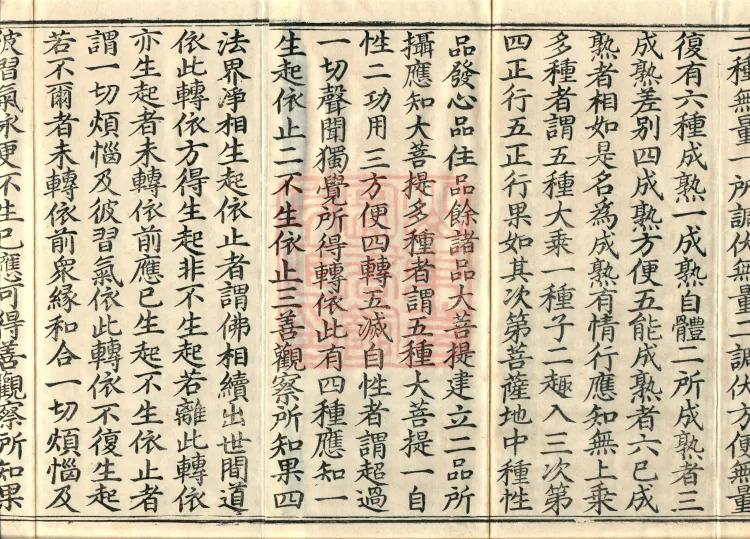 二種無量一所調伏無量二調伏方便無量
復有六種成熟一成熟自體二所成熟者三
成熟差別四成熟方便五能成熟者六已成
熟者相如是名為成熟有情行應知無上乘
多種者謂五種大乘一種子二趣入三次第
四正行五正行果如其次第菩薩地中種性
品發心品住品餘諸品大菩提建立二品所
攝應知大菩提多種者謂五種大菩提一自
性二功用三方便四轉五滅自性者謂超過
一切聲聞獨覺所得轉依此有四種應知一
生起依止二不生依止三善觀察所知果四
法界淨相生起依止者謂佛相續出世間道
依此轉依方得生起非不生起若離此轉依
亦生起者未轉依前應已生起不生依止者
謂一切煩惱及彼習氣依此轉依不復生起
若不爾者未轉依前衆緣和合一切煩惱及
彼習氣永更不生已應可得善觀察所知果